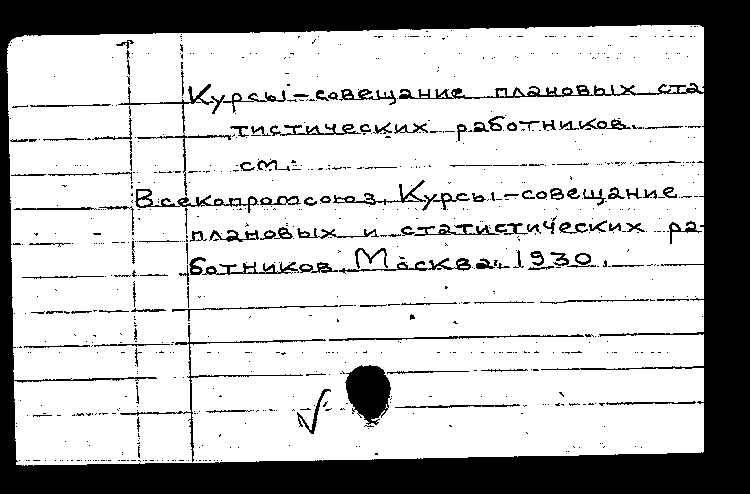 Курсы-совещание плановых ста-
тистических работников.
см.:
Всекопромсоюз. Курсы-совещание
плановых и статистических ра-
ботников. Москва, 1930.